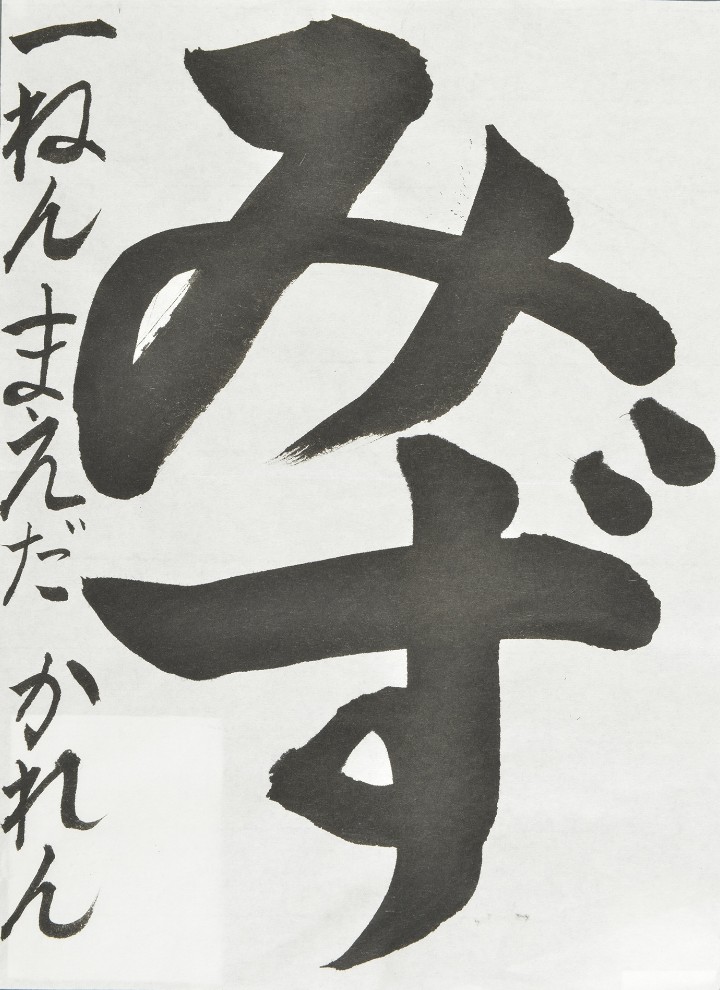 みず
一ねん まえだ かれん